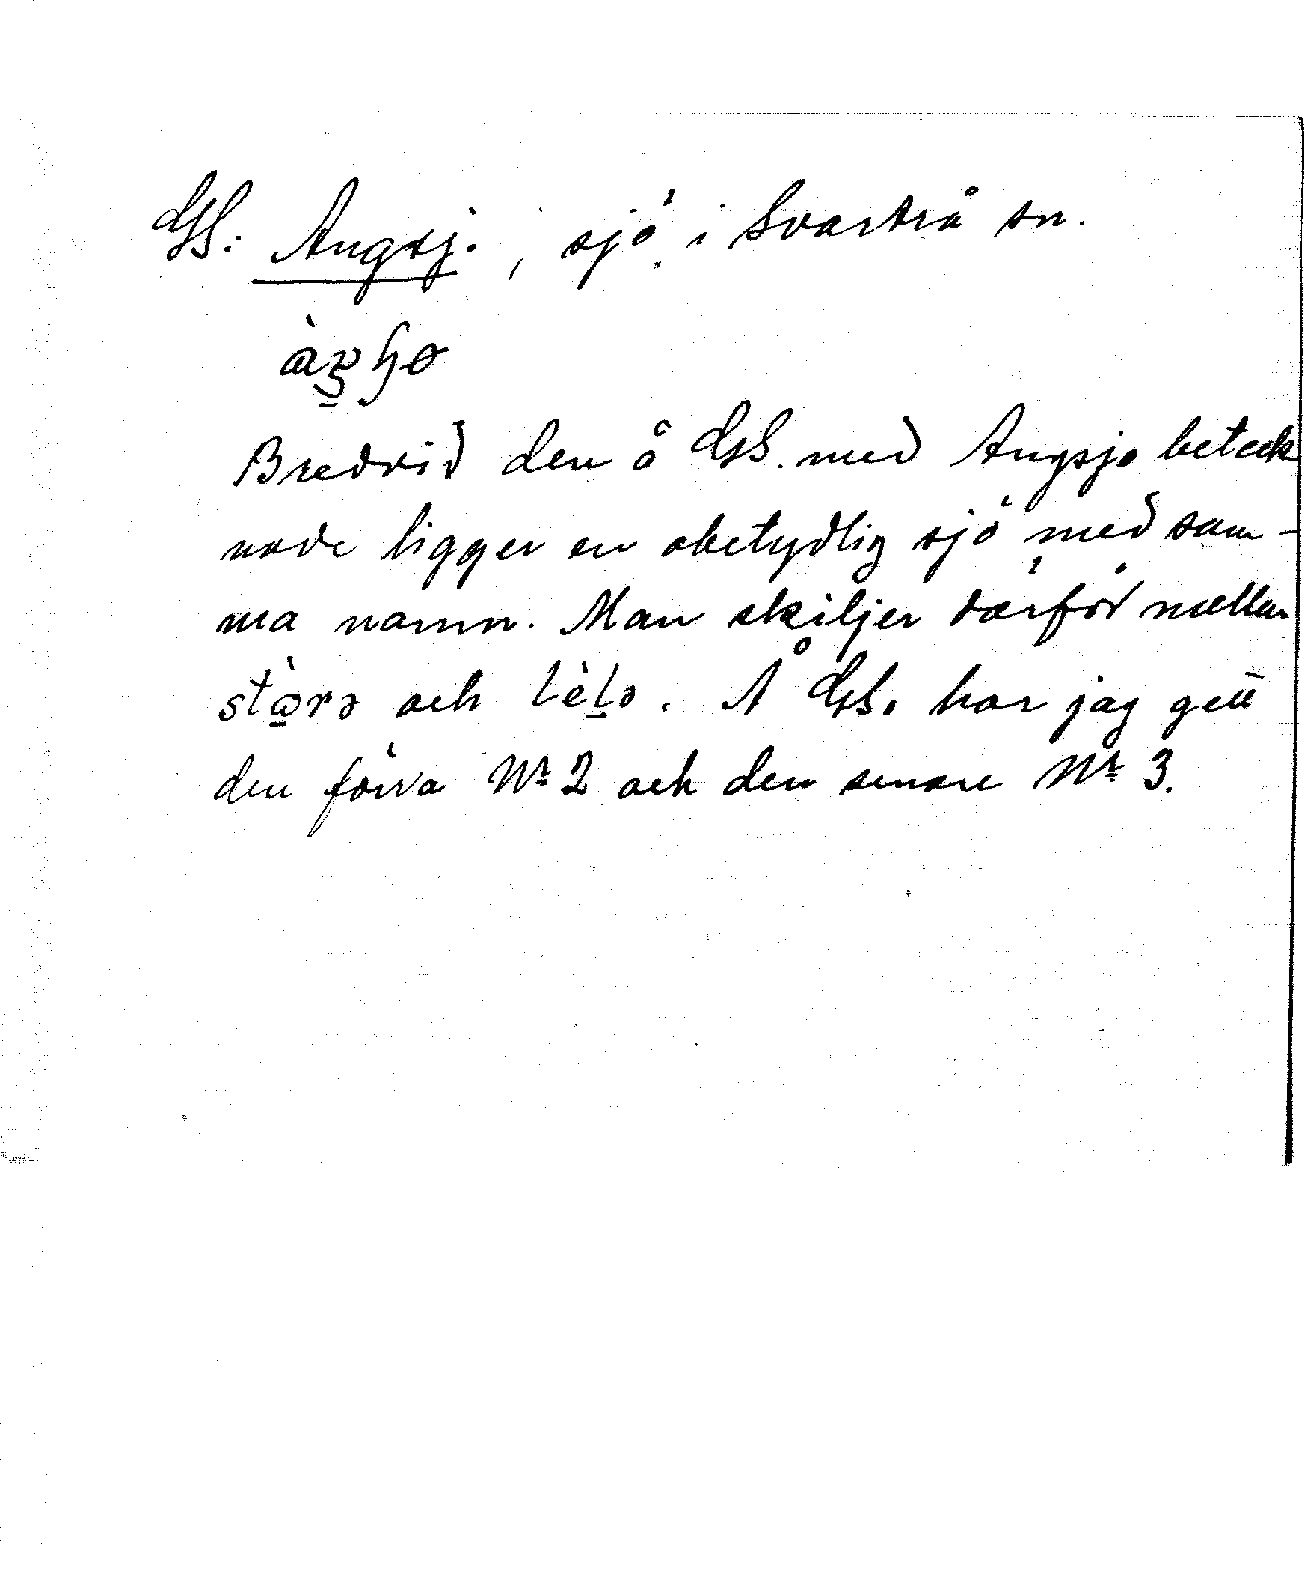 GS: Angsj. , sjö i Svartrå sn.
Bredvid den å GS. med Angsjo beteck
nade ligger en obetydlig sjö med sam-
ma namn. Man skiljer därför mellan
stòrə och lèlə. Å GS. har jag gett
den förra Nr 2 och den senare Nr 3.